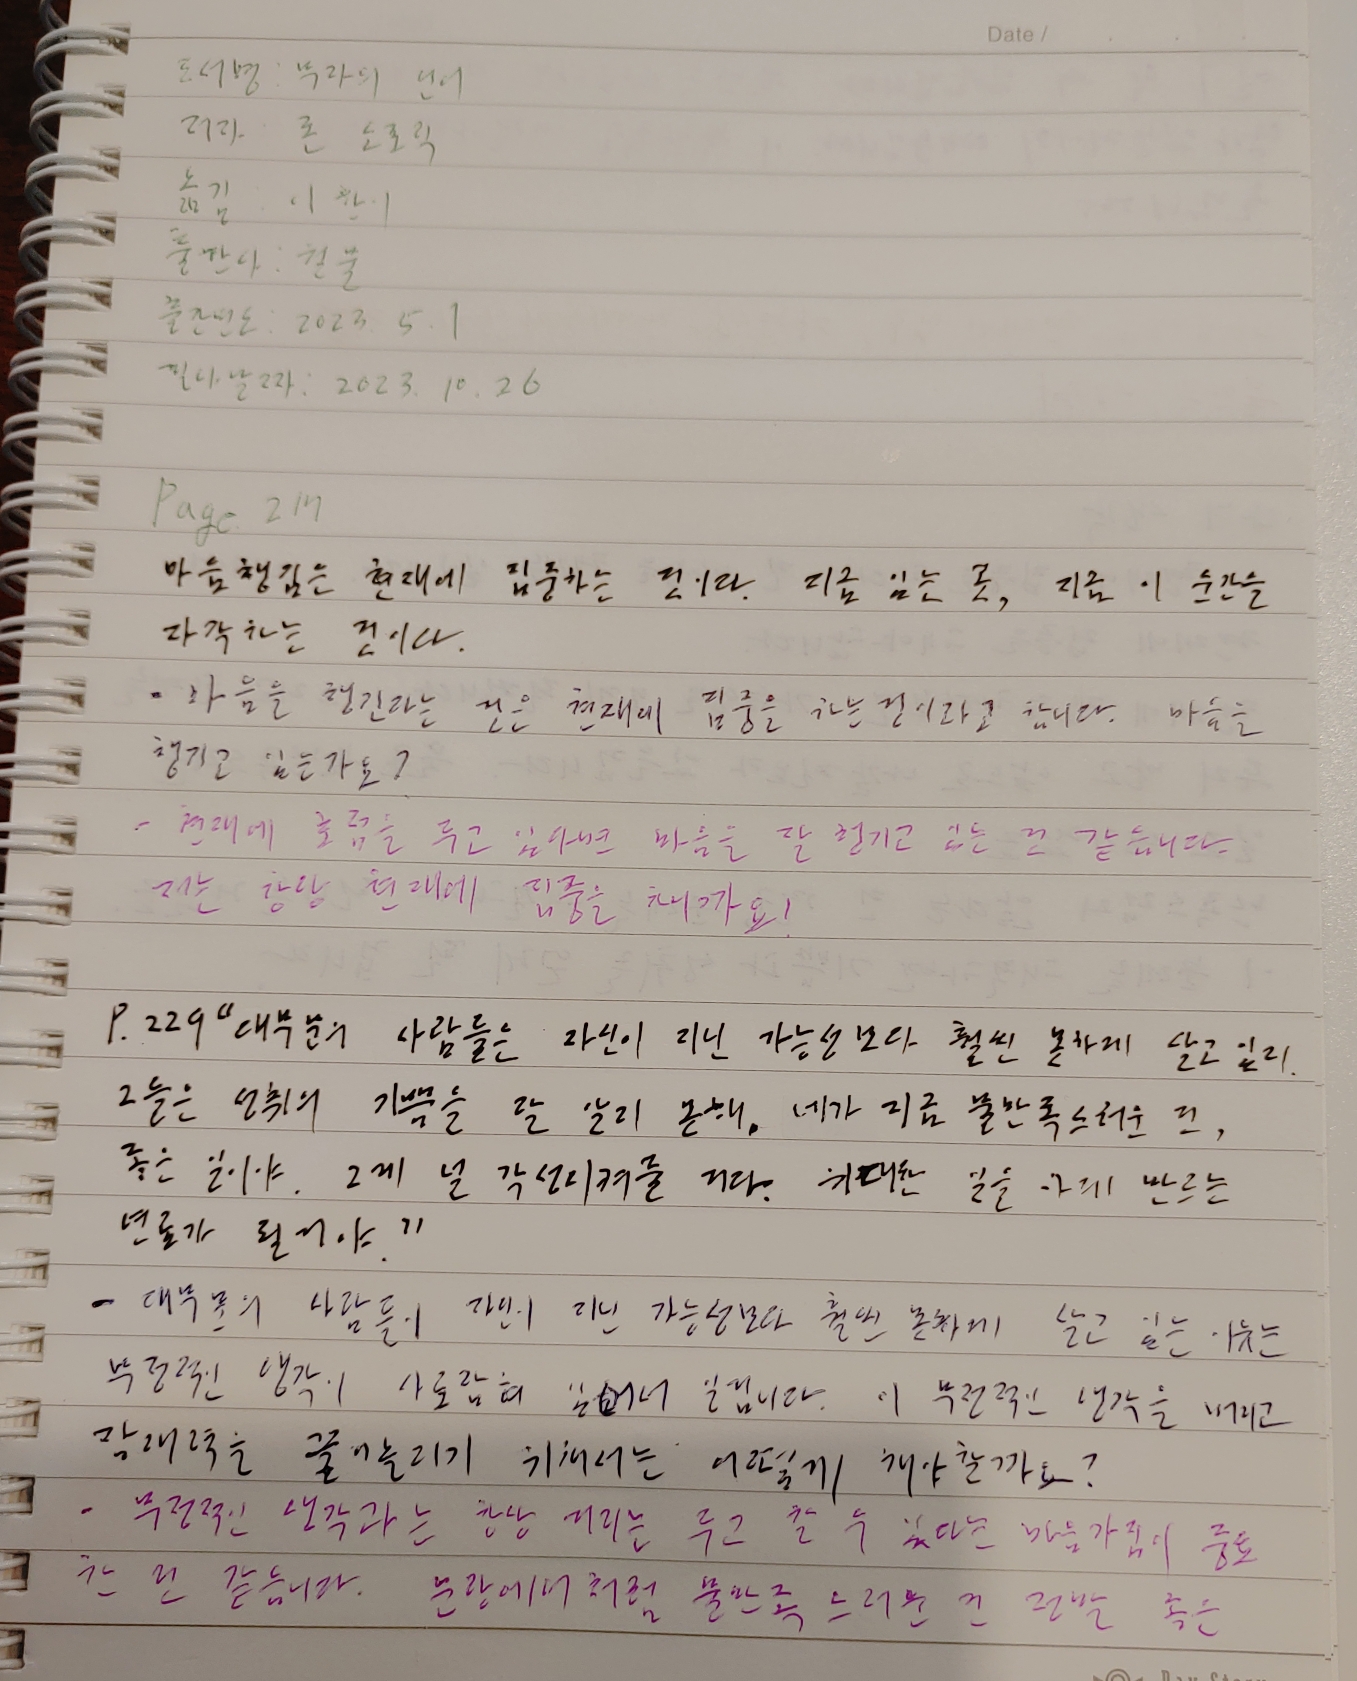 Date /
도서명 : 부자의 언어
저자 : 존 소포릭
옮김 : 이한이
출판사 : 윌북
출간년도 : 2023. 5. 1
필사날짜 : 2023. 10. 26
Page 217
마음챙김은 현재에 집중하는 것이다. 지금 있는 곳, 지금 이 순간을
자각하는 것이다.
- 마음을 챙긴다는 것은 현재에 집중을 하는것이라고 합니다. 마음을
챙기고 있는가요?
- 현재에 초점을 두고 있다면 마음을 잘 챙기고 있는 것 같습니다.
저는 항상 현재에 집중을 해까요!
P. 229 "대부분의 사람들은 자신이 지닌 가능성보다 훨씬 못하게 살고 있지.
그들은 성취의 기쁨을 잘 알지 못해. 네가 지금 불만족스러운 건,
좋은 일이야. 그게 널 각성시켜줄 거다. 위대한 일을 하게 만드는
연료가 될거야."
- 대부분의 사람들이 자신이 지닌 가능성보다 훨씬 못하게 살고 있는 이유는
부정적인 생각이 사로잡혀 있어서 일겁니다. 이 부정적인 생각을 버리고
잠재력을 끌어올리기 위해서는 어떻게 해야할까요?
- 부정적인 생각과는 항상 거리는 두고 할 수 있다는 마음가짐이 중요
한 것 같습니다. 문장에서처럼 불만족스러운 건 정말 좋은